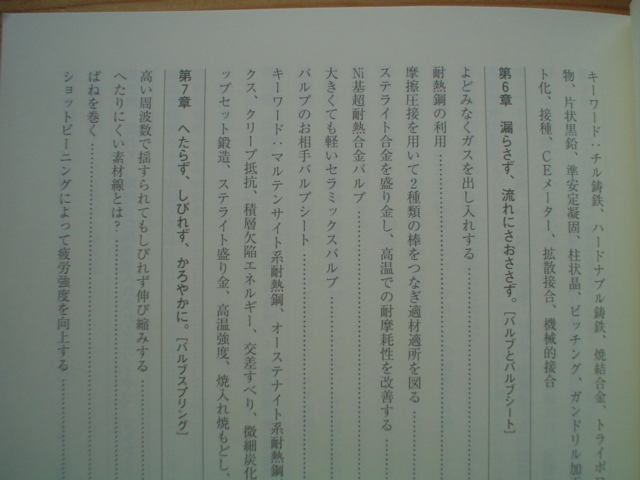 キーワード：チル鋳鉄、ハードナブル鋳鉄、焼結合金、トライボ
物、片状黒鉛、準安定凝固、柱状晶、ピッチング、ガンドリル加
ト化、接種、CEメーター、拡散接合、機械的接合
第6章　漏らさず、流れにさおささず。［バルブとバルブシート］
よどみなくガスを出し入れする
耐熱鋼の利用
摩擦圧接を用いて2種類の棒をつなぎ適材適所を図る
ステライト合金を盛り金し、高温での耐摩耗性を改善する
Ni基超耐熱合金バルブ
大きくても軽いセラミックスバルブ
バルブのお相手バルブシート
キーワード：マルテンサイト系耐熱鋼、オーステナイト系耐熱鋼
クス、クリープ抵抗、積層欠陥エネルギー、交差すべり、微細炭化
ップセット鍛造、ステライト盛り金、高温強度、焼入れ焼もどし、
第7章　へたらず、しびれず、かろやかに。［バルブスプリング］
高い周波数で揺すられてもしびれず伸び縮みする
へたりにくい素材線とは？
ばねを巻く
ショットピーニングによって疲労強度を向上する